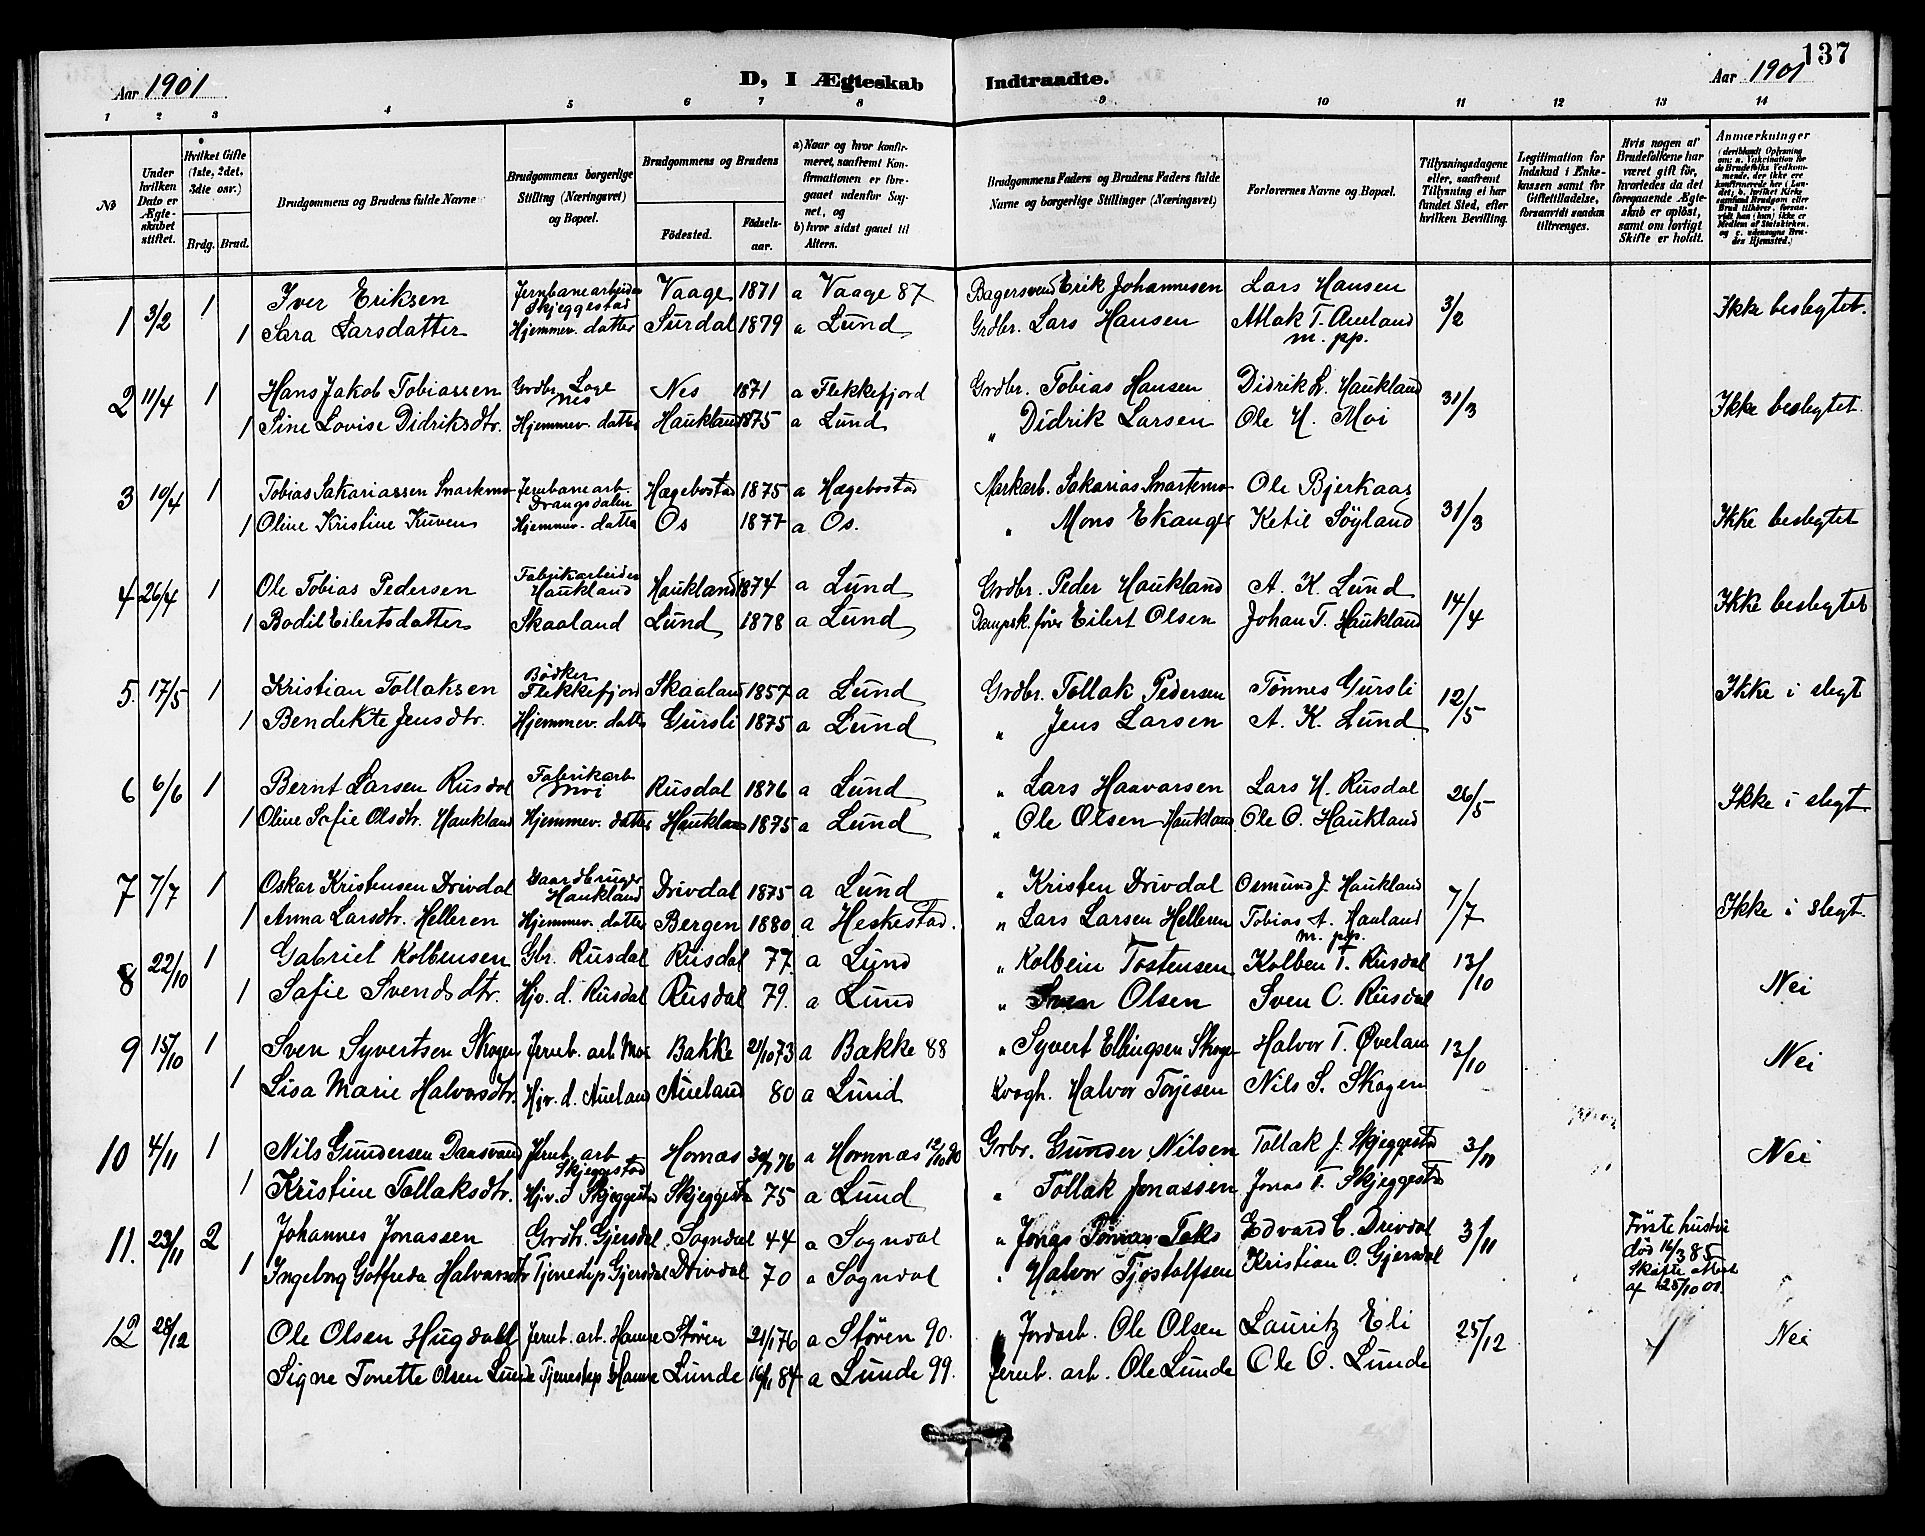 137
Aar 1901 D, I Ægteskab Indtraadte. Aar 1901
1 2 3 4 5 6 7 8 9 10 11 12 13 14
No
Under hvilken Dato er Ægteskabet stiftet.
Hvilket Gifte (1ste, 2det, 3die osv.)
Brdg. Brud.
Brudgommens og Brudens fulde Navne
Brudgommens borgerlige Stilling (Næringsvei) og Bopæl.
Brudgommens og Brudens
Fødested. Fødselsaar.
a) Naar og hvor konfirmeret, saafremt Konfirmationen er foregaaet udenfor Sognet, og
b) hvor sidst gaaet til Alters.
Brudgommens Faders og Brudens Faders fulde Navne og borgerlige Stillinger (Næringsvei)
Forlovernes Navne og Bopæl.
Tillysningsdagene eller, saafremt Tillysning ei har fundet Sted, efter hvilken Bevilling.
Legitimation for Indskud i Enkekassen samt for Giftetilladelse, forsaavidt saadan tiltrænges.
Hvis nogen af Brudefolkene har været gift før, hvorledes da det foregaaende Ægteskab er opløst, samt om lovligt Skifte er holdt.
Anmærkninger
1 3/2 1 Iver Eriksen Jernbanearbeider Skjeggestad Vaage 1871 a Vaage 87 Bagersvend Erik Johannesen Lars Hansen 3/2 Ikke beslegtet.
1 Sara Larsdatter Hjemmev. datter Surdal 1879 a Lund Grdbr. Lars Hansen Atlak T. Aueland m. pp.
2 11/4 1 Hans Jakob Tobiassen Grdbr. Loge Nes Nes 1871 a Flekkefjord Grdbr. Tobias Hansen Didrik L. Haukland 31/3 Ikke beslegtet
1 Sine Lovise Didriksdtr. Hjemmev. datter Haukland 1875 a Lund " Didrik Larsen Ole H. Moi
3 10/4 1 Tobias Sakariassen Snartemo Jernbanearb. Drangsdalen Hægebostad 1875 a Hægebostad Markarb. Sakarias Snartemo Ole Bjerkaas 31/3 Ikke beslegtet
1 Oline Kristine Kuven Hjemmev. datter Os 1877 a Os. " Mons Ekanger Ketil Søyland
4 26/4 1 Ole Tobias Pedersen Fabrikarbeider Haukland Haukland 1874 a Lund Grdbr. Peder Haukland A. K. Lund 14/4 Ikke beslegtet
1 Bodil Eilertsdatter Skaaland Lund 1878 a Lund Dampsk. fører Eilert Olsen Johan T. Haukland
5. 17/5 1 Kristian Tollaksen Bødker Flekkefjord Skaaland 1857 a Lund Grdbr. Tollak Pedersen Tønnes Gursli 12/5 Ikke i slegt
1 Bendikte Jensdtr. Hjemmev. datter Gursli 1875 a Lund " Jens Larsen A. K. Lund
6 6/6 1 Bernt Larsen Rusdal Fabrikarb Moi Rusdal 1876 a Lund " Lars Haavarsen Lars H. Rusdal 26/5 Ikke i slegt
1 Oline Sofie Olsdtr. Haukland Hjemmev. datter Haukland 1875 a Lund " Ole Olsen Haukland Ole O. Haukland
7 7/7 1 Oskar Kristensen Drivdal Gaardbruger Haukland Drivdal 1875 a Lund " Kristen Drivdal Osmund J. Haukland 7/7 Ikke i slegt
1 Anna Larsdtr. Helleren Hjemmev. datter Bergen 1880 a Heskestad. " Lars Larsen Helleren Tobias A. Hauland m. pp.
8 22/10 1 Gabriel Kolbensen Gbr. Rusdal Rusdal 77. a Lund " Kolbein Tostensen Kolben T. Rusdal 13/10 Nei
1 Safie Svendsdtr. Hjv. d. Rusdal Rusdal 79. a Lund " Sven Olsen Sven O. Rusdal
9 15/10 1 Sven Syvertsen Skogen Jernb. arb Moi Bakke 21/10 73 a Bakke 88 " Syvert Ellingsen Skogen Halvor T. Øvelan 13/10 Nei
1 Lisa Marie Halvorsdtr. Hjv. d. Aueland Aueland 80 a Lund Halvor Torjesen Nils S. Skogen
10 4/11 1 Nils Gundersen Daasvand Jernb. arb Skjeggestad Hornæs 76 a Hornnæs 12/10 90 Grbr. Gunder Nilsen Tollak J. Skjeggestd 3/11 Nei
1 Kristine Tollaksdtr. Hjv. d Skjeggestd Skjeggestd 75 a Lund " Tollak Jonassen Jonas T. Skjeggestd
11. 23/11 2 Johannes Jonassen Grdbr. Gjersdal Sogndal 44 a Sogndal " Jonas Tønnes Teks Edvard C. Drivdal 3/11 Første hustru død 16/3 85 Skifte attest af 25/10 01.
1 Ingeborg Gotfreda Halvorsdtr Tjenestep Gjersdal Drivdal 70 a Sogndal " Halvor Tjostolfsen Kristian O. Gjersdal
12 28/12 Ole Olsen Hugdahl Jernb. arb. Hamre Støren 21/1 76 a Støren 90. " Jordarb. Ole Olsen Lauritz Eli 25/12 Nei
Signe Tonette Olsen Lunde Tjenestep Hamre Lunde 16/11 84 a Lunde 99. Jernb. arb. Ole Lunde Ole O. Lunde